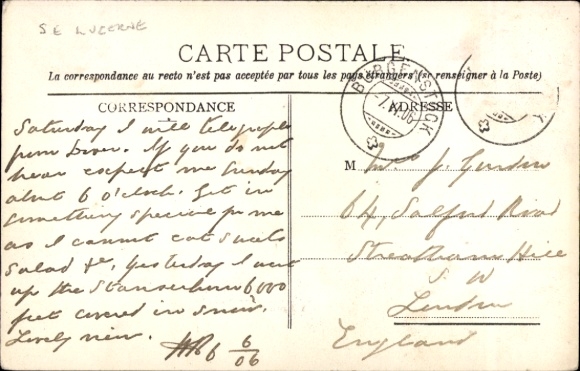 S E LUCERNE
CARTE POSTALE
La correspondance au recto n'est pas acceptée par tous les pays étrangers (se renseigner à la Poste)
CORRESPONDANCE
ADRESSE
BÜRGENSTOCK
7.VI.06
Saturday I will telegraph
from Dover. If you do not
hear expect me Sunday
about 6 o'clock. Get in
something special for me
as I cannot eat sweets
salad &c, Yesterday I went
up the Stanserhorn 6000
feet covered in snow.
Lovely view.
6 6/06
M
J.
64, Salford Road
Streatham Hill
S. W
London
England